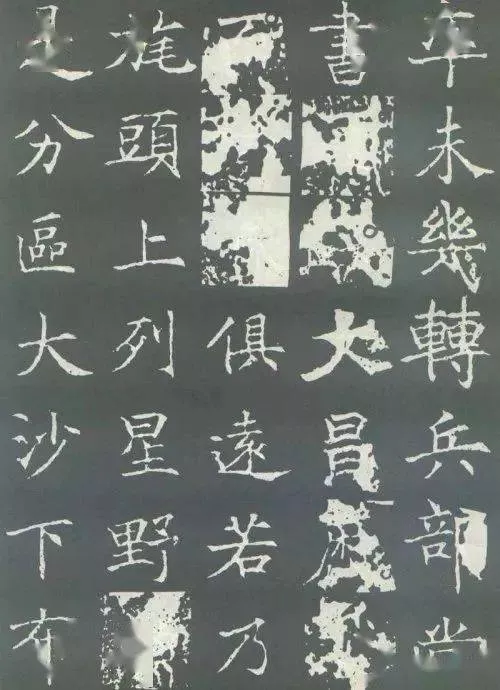 卒未幾轉兵部尚
書大昌
俱遠若乃
旄頭上列星野
是分區大沙下布